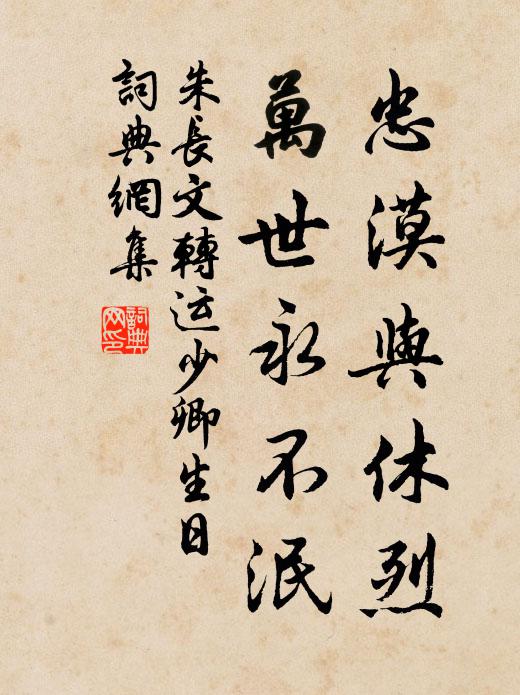 忠漠與休烈
萬世永不泯
朱長文轉运少卿生日
詞典網集
詞典网印